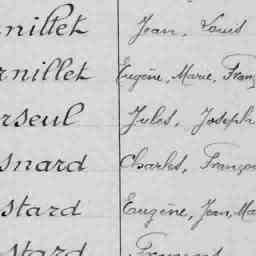 nillet Jean, Louis
rnillet Eugène, Marie, Franç
rseul Jules, Joseph
snard Charles, Franço
stard Eugène, Jean, Ma
stard François